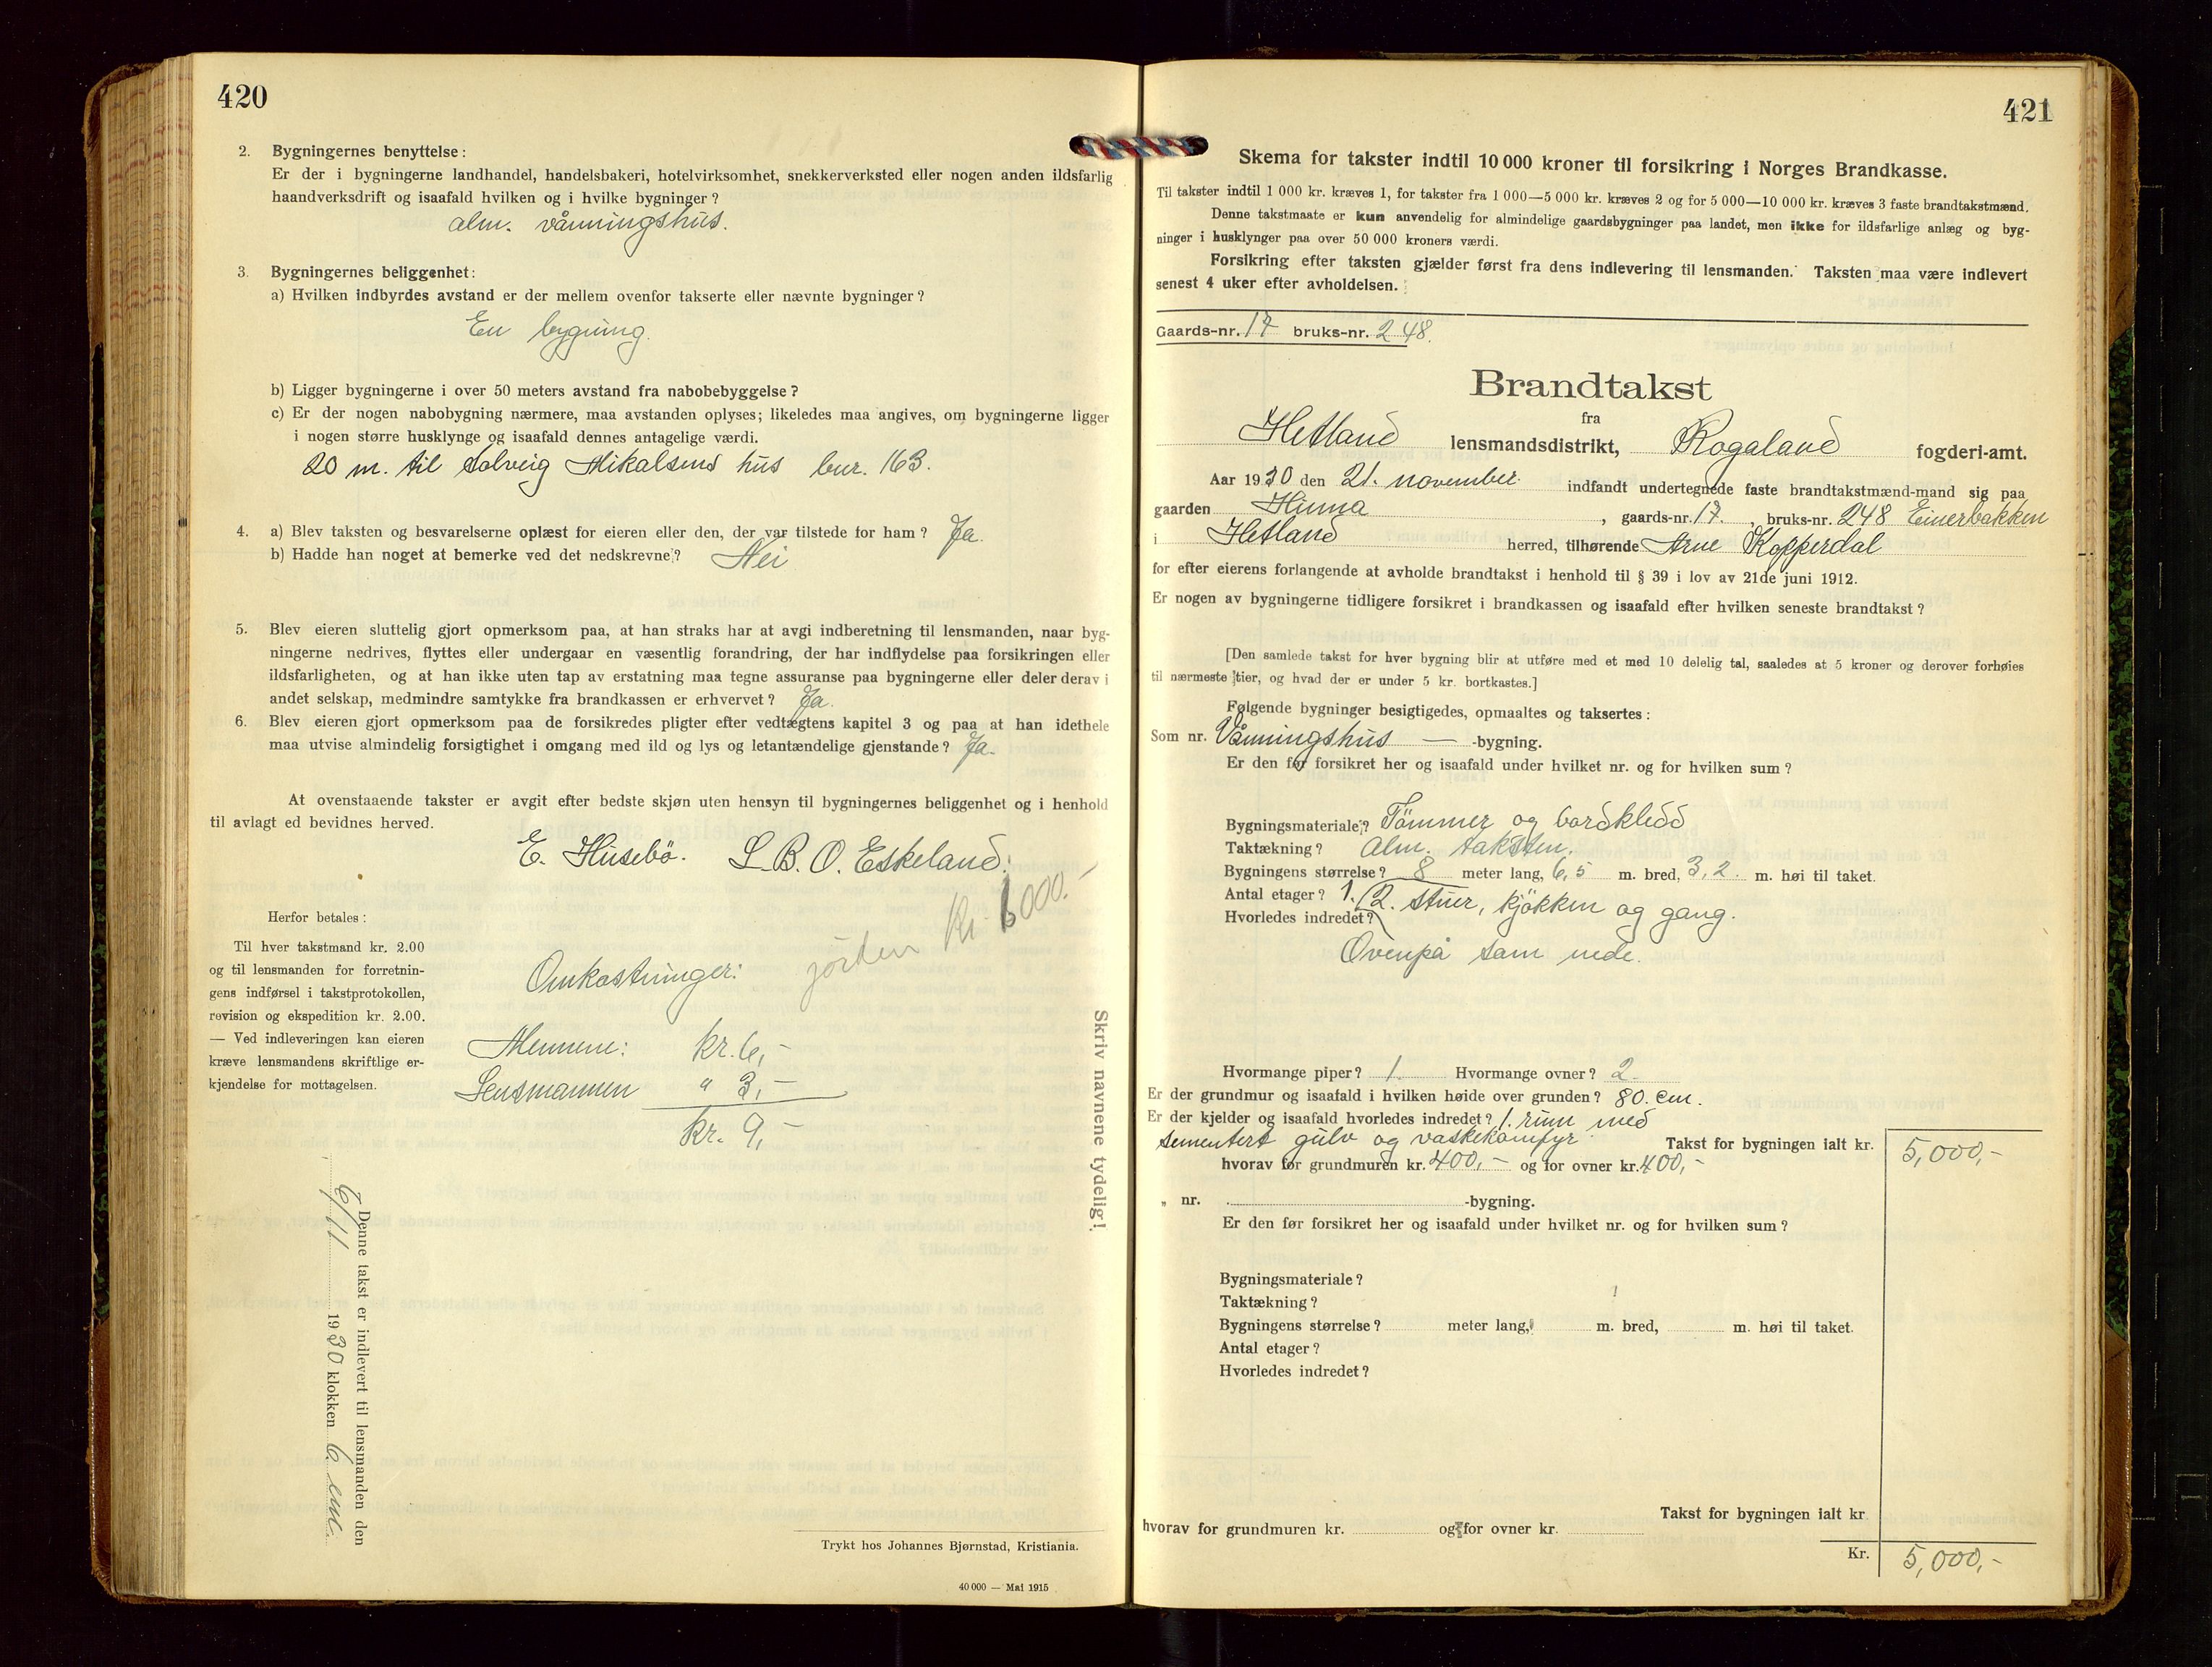 420
2. Bygningernes benyttelse:
Er der i bygningerne landhandel, handelsbakeri, hotelvirksomhet, snekkerverksted eller nogen anden ildsfarlig
haandverksdrift og isaafald hvilken og i hvilke bygninger?
alm. vånningshus.
3. Bygningernes beliggenhet:
a) Hvilken indbyrdes avstand er der mellem ovenfor takserte eller nævnte bygninger?
En bygning.
b) Ligger bygningerne i over 50 meters avstand fra nabobebyggelse?
c) Er der nogen nabobygning nærmere, maa avstanden oplyses; likeledes maa angives, om bygningerne ligger
i nogen større husklynge og isaafald dennes antagelige værdi.
20 m. til Solveig Mikalsens hus bnr. 163.
4. a) Blev taksten og besvarelserne oplæst for eieren eller den, der var tilstede for ham? Ja.
b) Hadde han noget at bemerke ved det nedskrevne? Nei
5. Blev eieren sluttelig gjort opmerksom paa, at han straks har at avgi indberetning til lensmanden, naar byg-
ningerne nedrives, flyttes eller undergaar en væsentlig forandring, der har indflydelse paa forsikringen eller
ildsfarligheten, og at han ikke uten tap av erstatning maa tegne assuranse paa bygningerne eller deler derav i
andet selskap, medmindre samtykke fra brandkassen er erhvervet? Ja.
6. Blev eieren gjort opmerksom paa de forsikredes pligter efter vedtægtens kapitel 3 og paa at han idethele
maa utvise almindelig forsigtighet i omgang med ild og lys og letantændelige gjenstande? Ja.
At ovenstaaende takster er avgit efter bedste skjøn uten hensyn til bygningernes beliggenhet og i henhold
til avlagt ed bevidnes herved.
E. Husebö. L. B. O. Eskeland.
jorden Kr. 6000.-
Herfor betales:
Til hver takstmand kr. 2.00
og til lensmanden for forretnin-
gens indførsel i takstprotokollen,
revision og ekspedition kr. 2.00.
— Ved indleveringen kan eieren
kræve lensmandens skriftlige er-
kjendelse for mottagelsen.
Omkostninger:
Mennene: kr. 6,-
Lensmannen " 3,-
kr. 9,-
Skriv navnene tydelig!
Denne takst er indlevert til lensmanden den
6/11 1930 klokken 6 em.
Trykt hos Johannes Bjørnstad, Kristiania.
40 000 — Mai 1915
421
Skema for takster indtil 10 000 kroner til forsikring i Norges Brandkasse.
Til takster indtil 1 000 kr. kræves 1, for takster fra 1 000—5 000 kr. kræves 2 og for 5 000—10 000 kr. kræves 3 faste brandtakstmænd.
Denne takstmaate er kun anvendelig for almindelige gaardsbygninger paa landet, men ikke for ildsfarlige anlæg og byg-
ninger i husklynger paa over 50 000 kroners værdi.
Forsikring efter taksten gjælder først fra dens indlevering til lensmanden. Taksten maa være indlevert
senest 4 uker efter avholdelsen.
Gaards-nr. 17 bruks-nr. 248.
Brandtakst
fra
Hetland lensmandsdistrikt, Rogaland fogderi-amt.
Aar 1930 den 21. november indfandt undertegnede faste brandtakstmænd-mand sig paa
gaarden Hinna, gaards-nr. 17., bruks-nr. 248 Einerbakken
i Hetland herred, tilhørende Arne Kopperdal
for efter eierens forlangende at avholde brandtakst i henhold til § 39 i lov av 21de juni 1912.
Er nogen av bygningerne tidligere forsikret i brandkassen og isaafald efter hvilken seneste brandtakst?
[Den samlede takst for hver bygning blir at utføre med et med 10 delelig tal, saaledes at 5 kroner og derover forhøies
til nærmeste tier, og hvad der er under 5 kr. bortkastes.]
Følgende bygninger besigtigedes, opmaaltes og taksertes:
Som nr. Vånningshus — -bygning.
Er den før forsikret her og isaafald under hvilket nr. og for hvilken sum?
Bygningsmateriale? Tömmer og bordkledd
Taktækning? Alm. taksten.
Bygningens størrelse? 8 meter lang, 6,5 m. bred, 3,2. m. høi til taket.
Antal etager? 1.
Hvorledes indredet? 2. stuer, kjökken og gang.
Ovenpå som nede.
Hvormange piper? 1. Hvormange ovner? 2
Er der grundmur og isaafald i hvilken høide over grunden? 80. cm.
Er der kjelder og isaafald hvorledes indredet? 1. rum med
sementert gulv og vaskekomfyr Takst for bygningen ialt kr. 5,000,-
hvorav for grundmuren kr. 400,- og for ovner kr. 400,-
" nr. -bygning.
Er den før forsikret her og isaafald under hvilket nr. og for hvilken sum?
Bygningsmateriale?
Taktækning?
Bygningens størrelse? meter lang, m. bred, m. høi til taket.
Antal etager?
Hvorledes indredet?
Takst for bygningen ialt kr
hvorav for grundmuren kr. og for ovner kr.
Kr. 5,000,-